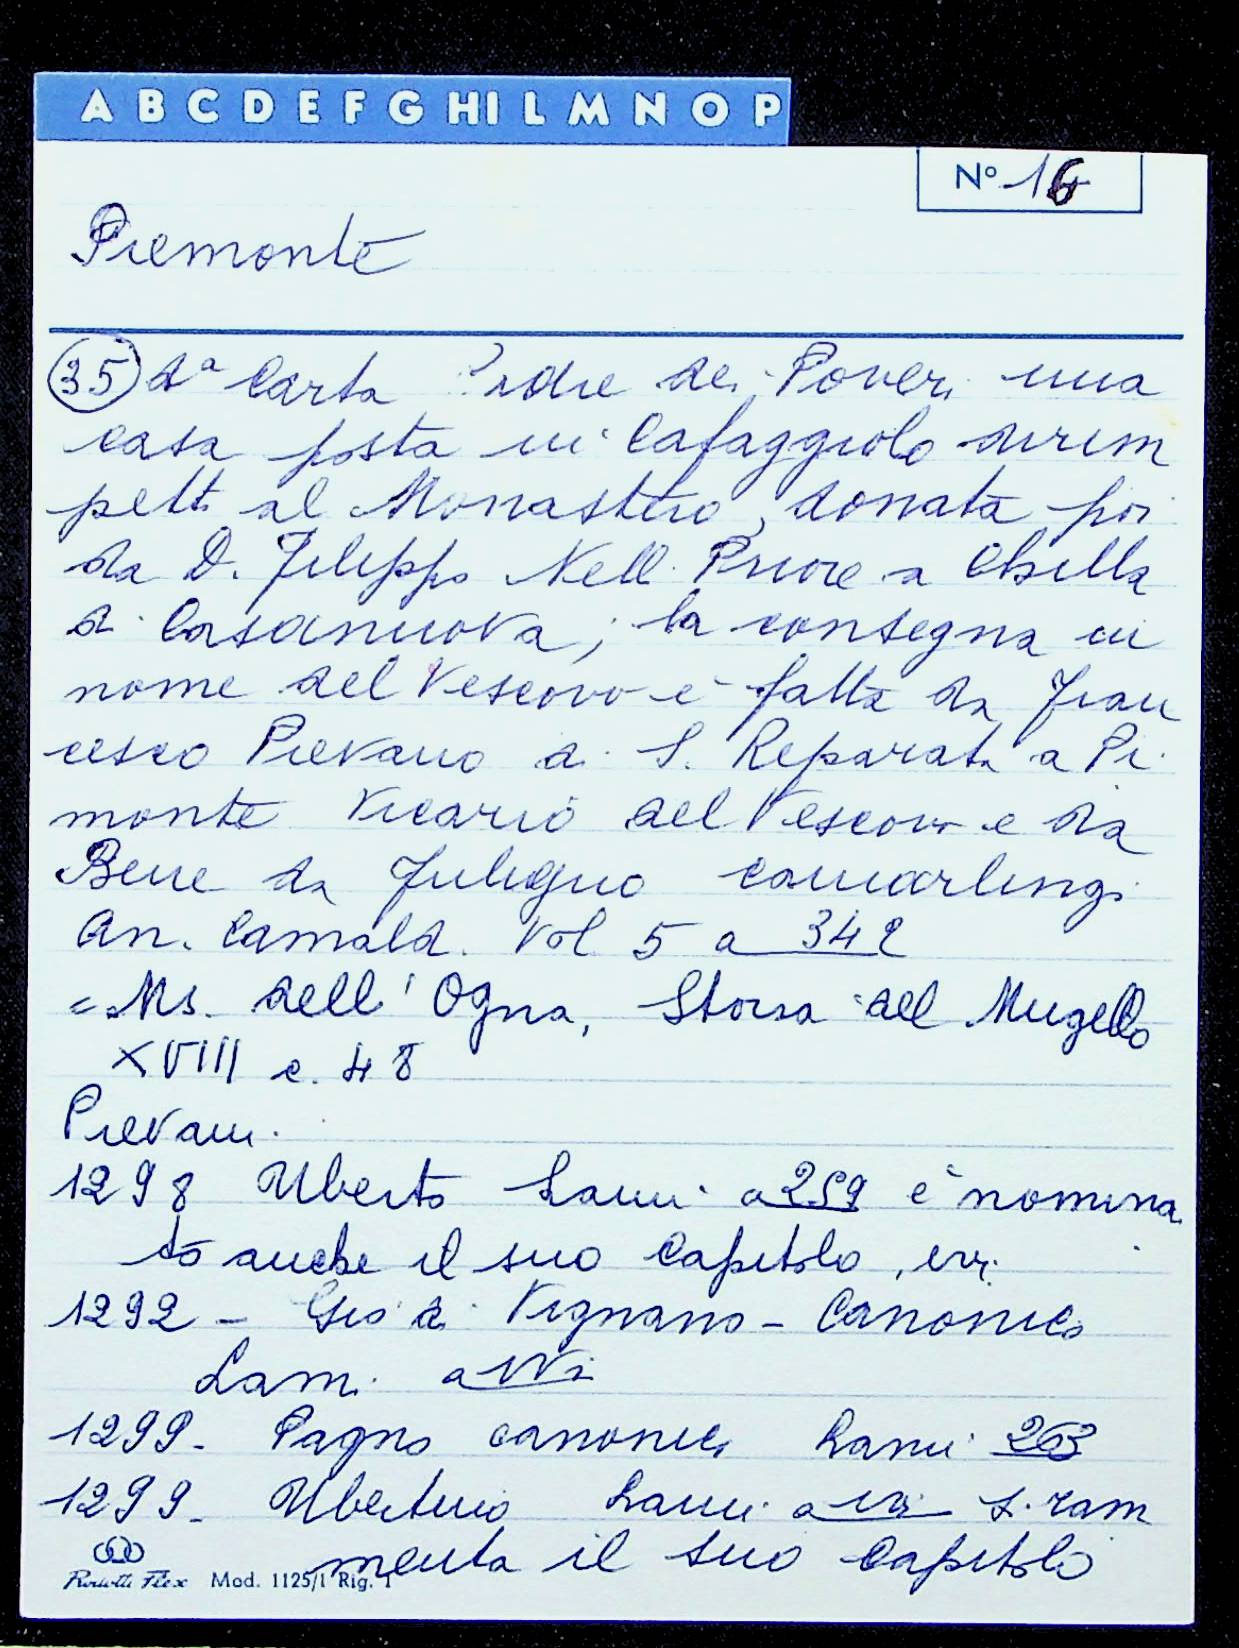 A B C D E F G HI L M N O P
N° 16
Piemonte
35 da Carta Padre dei Poveri una
casa posta in Cafaggiolo dirim
petto al Monastero, donata poi
da D. Filippo Nelli Priore a
di Casanuova; la consegna in
nome del Vescovo è fatta da Fran
cesco Pievano di S. Reparata a Pi
monte Vicario del Vescovo e da
Bene da Fuligno camarlingi
An. Camald. Vol 5 a 342
= Ms. dell'Ogna, Storia del Mugello
XVIII c. 48
Pievani
1298 Uberto Lami a 259 è nomina
to anche il suo Capitolo, ivi
1292 - Gio di Vignano - Canonico
Lami a ivi
1299 - Pagno canonico Lami 263
1299 - Ubertino Lami a ivi si ram
menta il suo Capitolo
Mod. 1125/1 Rig. 1